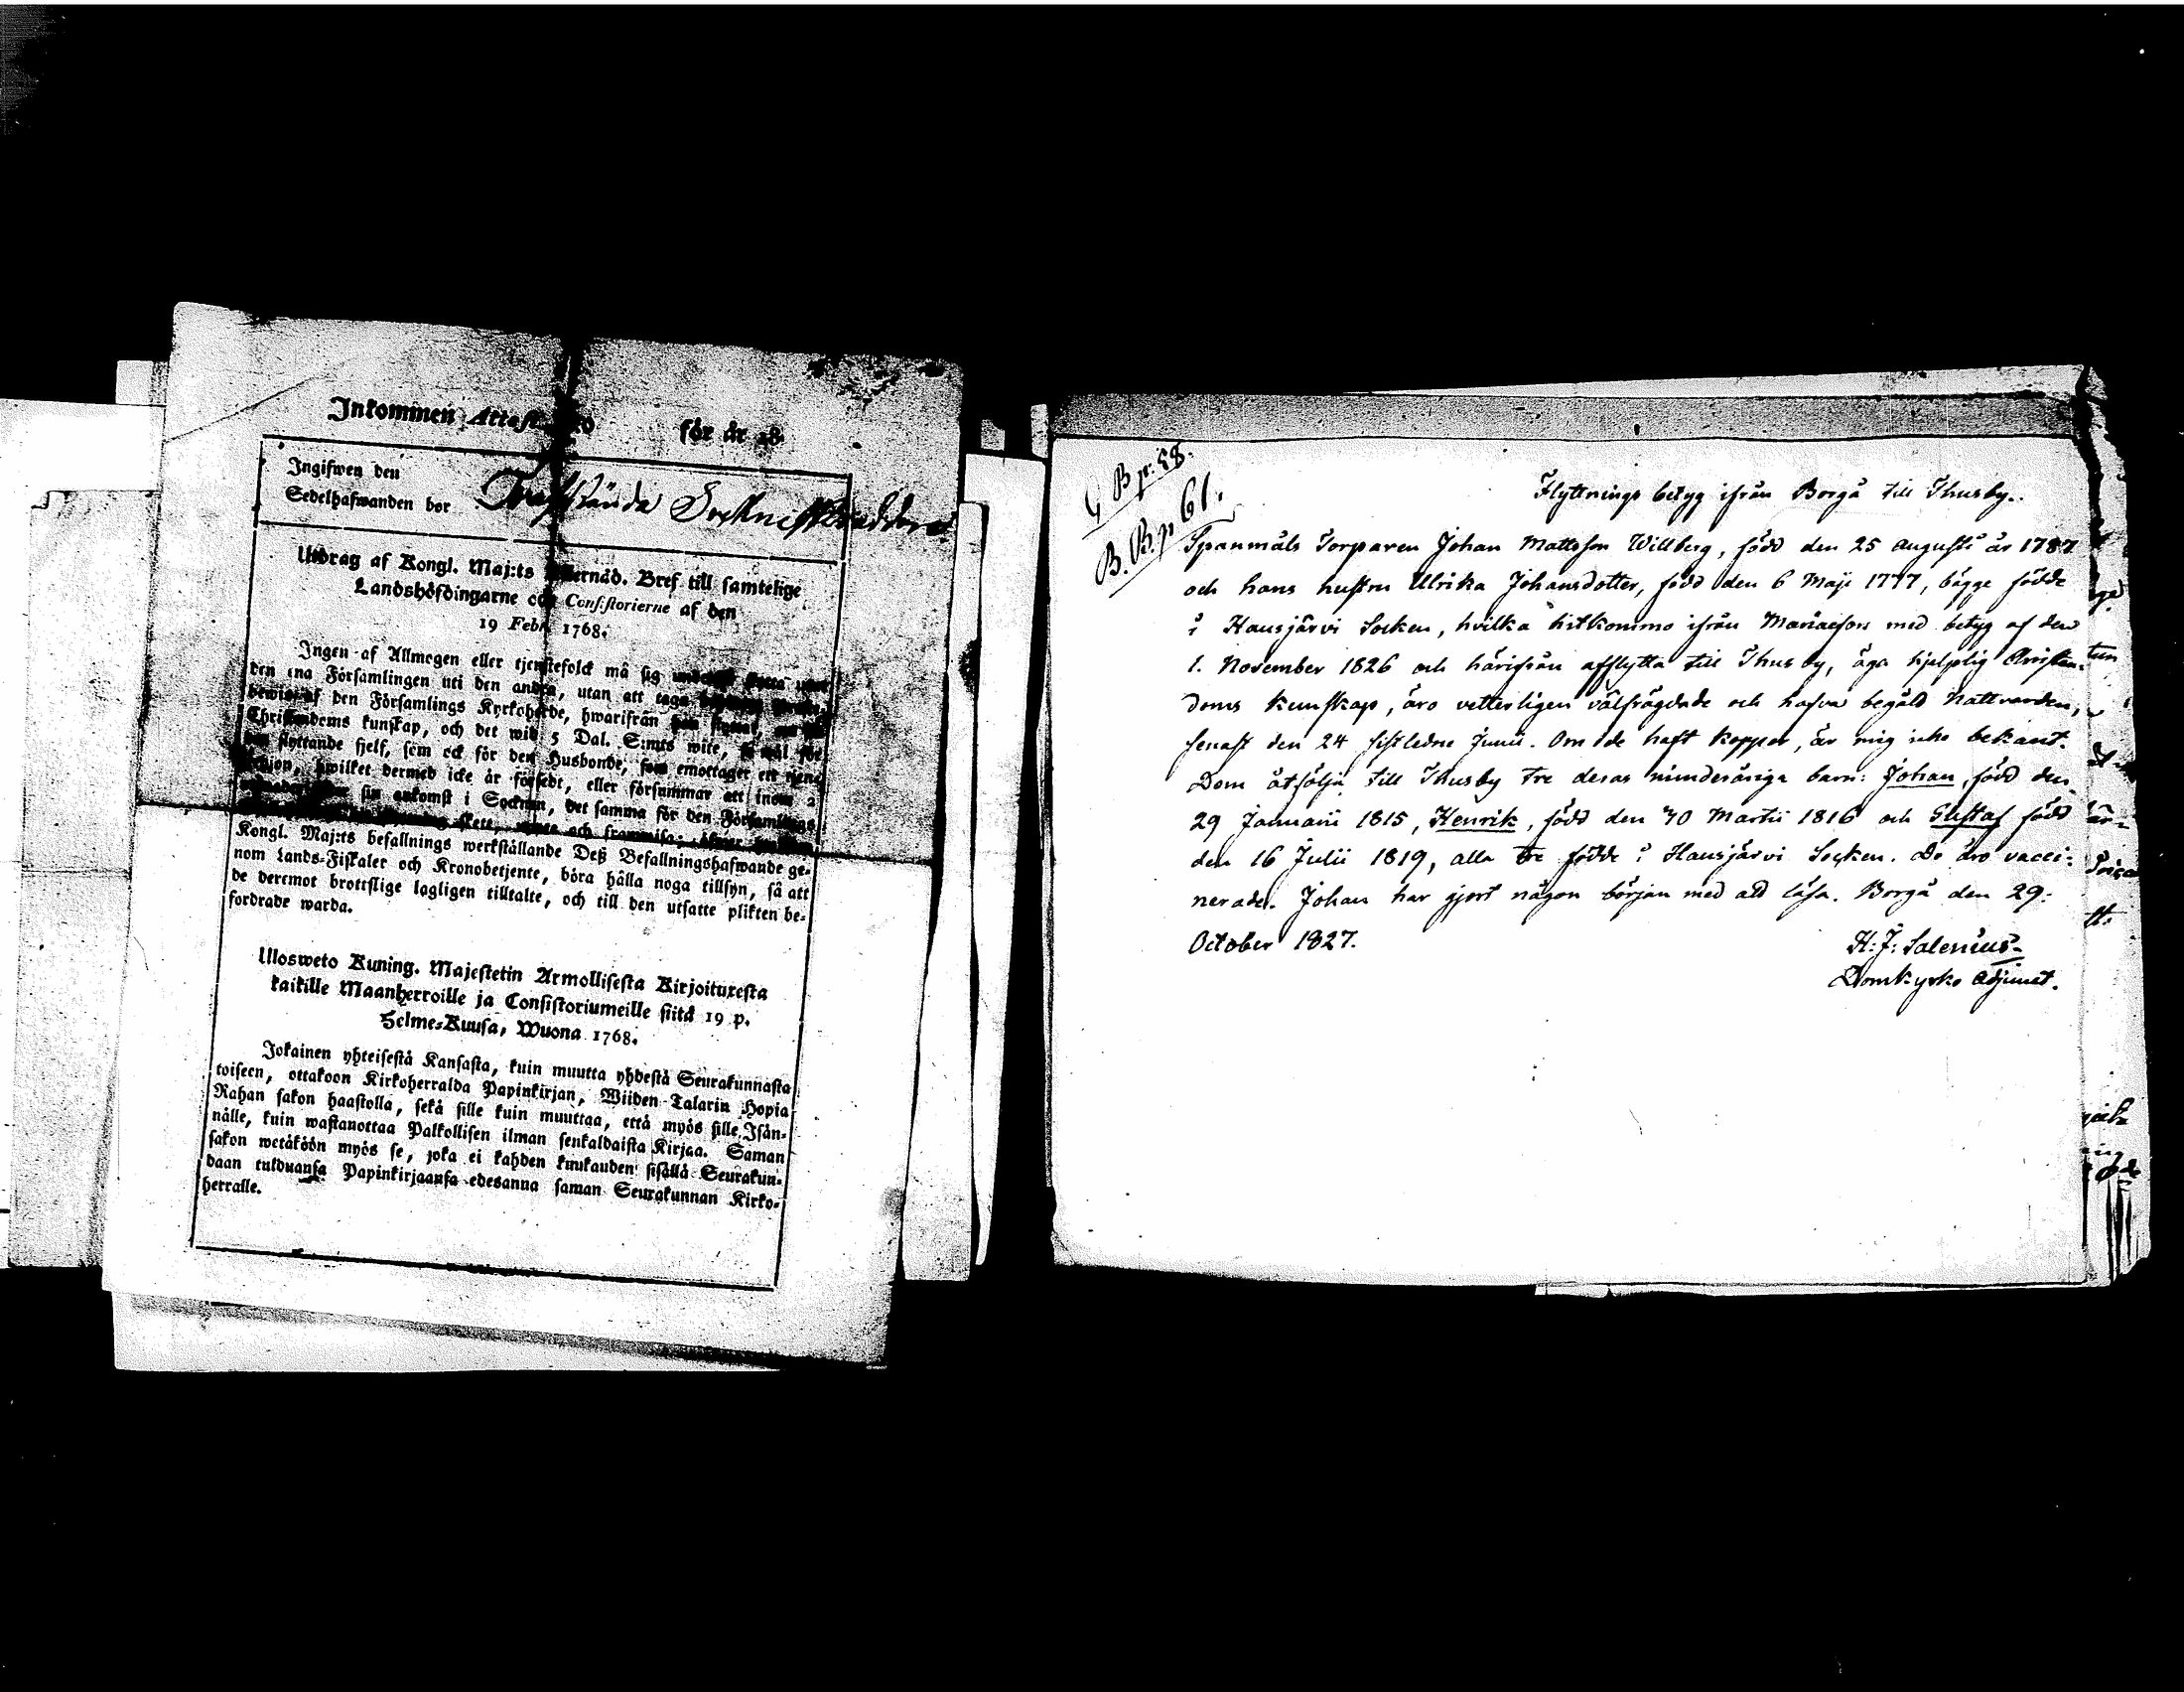 Inkommen Attest för år 18
Ingifwen den
Sedelhafwanden bor Träskända
Utdrag af Kongl. Maj:ts Bref till samtelige
Landshöfdingarne och Consistorierne af den
19 Febr. 1768.
Ingen af Allmogen eller tjenstefolck må sig
den ena Församlingen uti den andra, utan att taga
bewis af den Församlings Kyrkoherde, hwarifrån
Christendoms kunskap, och det wid 5 Dal. S:mts wite, så wäl för
den flyttande sjelf, som ock för den Husbonde, som emottager en
hwilket dermed icke är försedt, eller försummar att inom 2
sin ankomst i Socknen, det samma för den Församlings
skett, och framwisa;
Kongl. Maj:ts befallnings werkställande Deß Befallningshafwande ge-
nom Lands-Fiskaler och Kronobetjente, böra hålla noga tillsyn, så att
de deremot brottslige lagligen tilltalte, och till den utsatte plikten be-
fordrade warda.
Ulosweto Kuning. Majestetin Armollisesta Kirjoituxesta
kaikille Maanherroille ja Consistoriumeille siitä 19 p.
Helme-Kuusa, Wuona 1768.
Jokainen yhteisestä Kansasta, kuin muutta yhdestä Seurakunnasta
toiseen, ottakoon Kirkoherralda Papinkirjan, Wiiden Talarin Hopia
Rahan sakon haastolla, sekä sille kuin muuttaa, että myös sille Isän-
nälle, kuin wastanottaa Palkollisen ilman senkaldaista Kirjaa. Saman
sakon wetäköön myös se, joka ei kahden kuukauden sisällä Seurakun-
daan tulduansa Papinkirjaansa edesanna saman Seurakunnan Kirko-
herralle.
G B pr. 58.
B. B. p 61.
Flyttnings betyg ifrån Borgå till Thusby.
Spanmåls Torparen Johan Mattsson Willberg, född den 25 augusti år 1787
och hans hustru Ulrika Johansdotter, född den 6 Maji 1777, bägge födde
i Hausjärvi Socken, hvilka hitkommo ifrån Mariæfors med betyg af den
1. November 1826 och härifrån afflytta till Thusby, äga hjelplig Christen-
doms kunskap, äro vetterligen välfrägdade och hafva begådd Nattvarden,
senast den 24 sistledne Junii. Om de haft koppor, är mig icke bekant.
Dom åtfölja till Thusby tre deras minderåriga barn: Johan, född den
29 Januarii 1815, Henrik, född den 30 Martii 1816 och Gustaf född
den 16 Julii 1819, alla tre födde i Hausjärvi Socken. De äro vacci-
nerade. Johan har gjort någon början med att läsa. Borgå den 29.
October 1827.
H: J: Salenius
Domkyrko Adjunct.